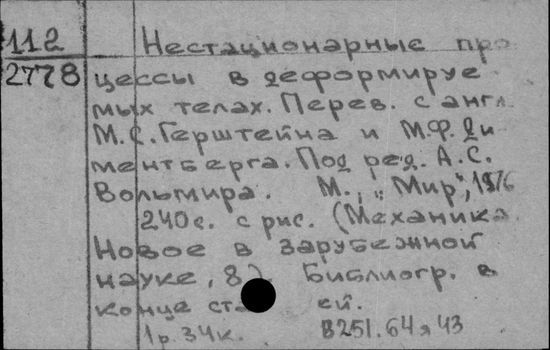 112 Нестационарные про
2778 цессы в деформируе-
мых телах. Перев. с англ.
М.С. Герштейна и М.Ф. Ди
ментберга. Под ред. А.С.
Вольмира. М., „Мир", 1976
240с. с рис. (Механика.
Новое в зарубежной
науке, 8). Библиогр. в
конце ста ей.
1р. 34к. В251.64я43